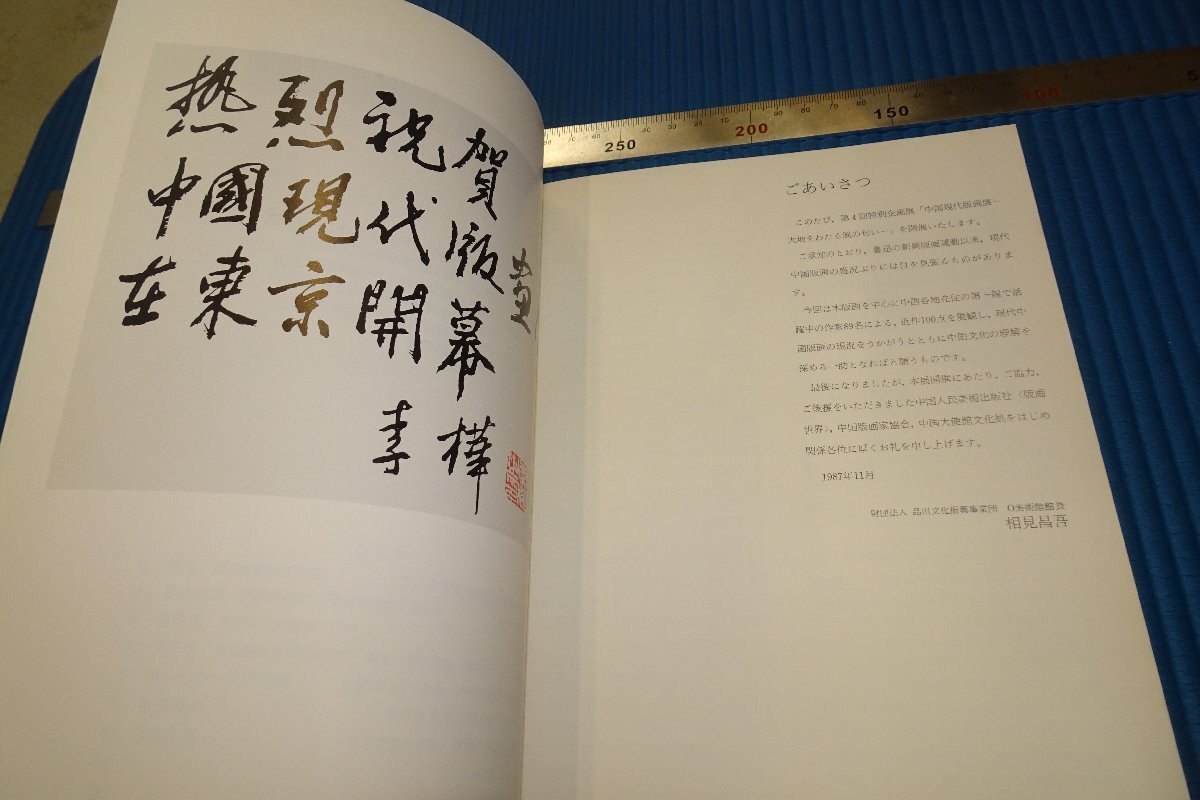 热烈祝賀
中國現代版
在東京開幕
李樺
250
200
150
100
ごあいさつ
このたび、第4回特別企画展「中国現代版画展－
大地をわたる風の匂い－」を開催いたします。
ご承知のとおり、魯迅の新興版画運動以来、現代
中国版画の盛況ぶりには目を見張るものがありま
す。
今回は木版画を中心に中国各地在住の第一線で活
躍中の作家89名による、近作100点を展観し、現代中
国版画の現況をうかがうとともに中国文化の理解を
深める一助となればと願うものです。
最後になりましたが、本展開催にあたり、ご協力、
ご後援をいただきました中国人民美術出版社〈版画
世界〉、中国版画家協会、中国大使館文化処をはじめ
関係各位に厚くお礼を申し上げます。
1987年11月
財団法人 品川文化振興事業団 O美術館館長
相見昌吾